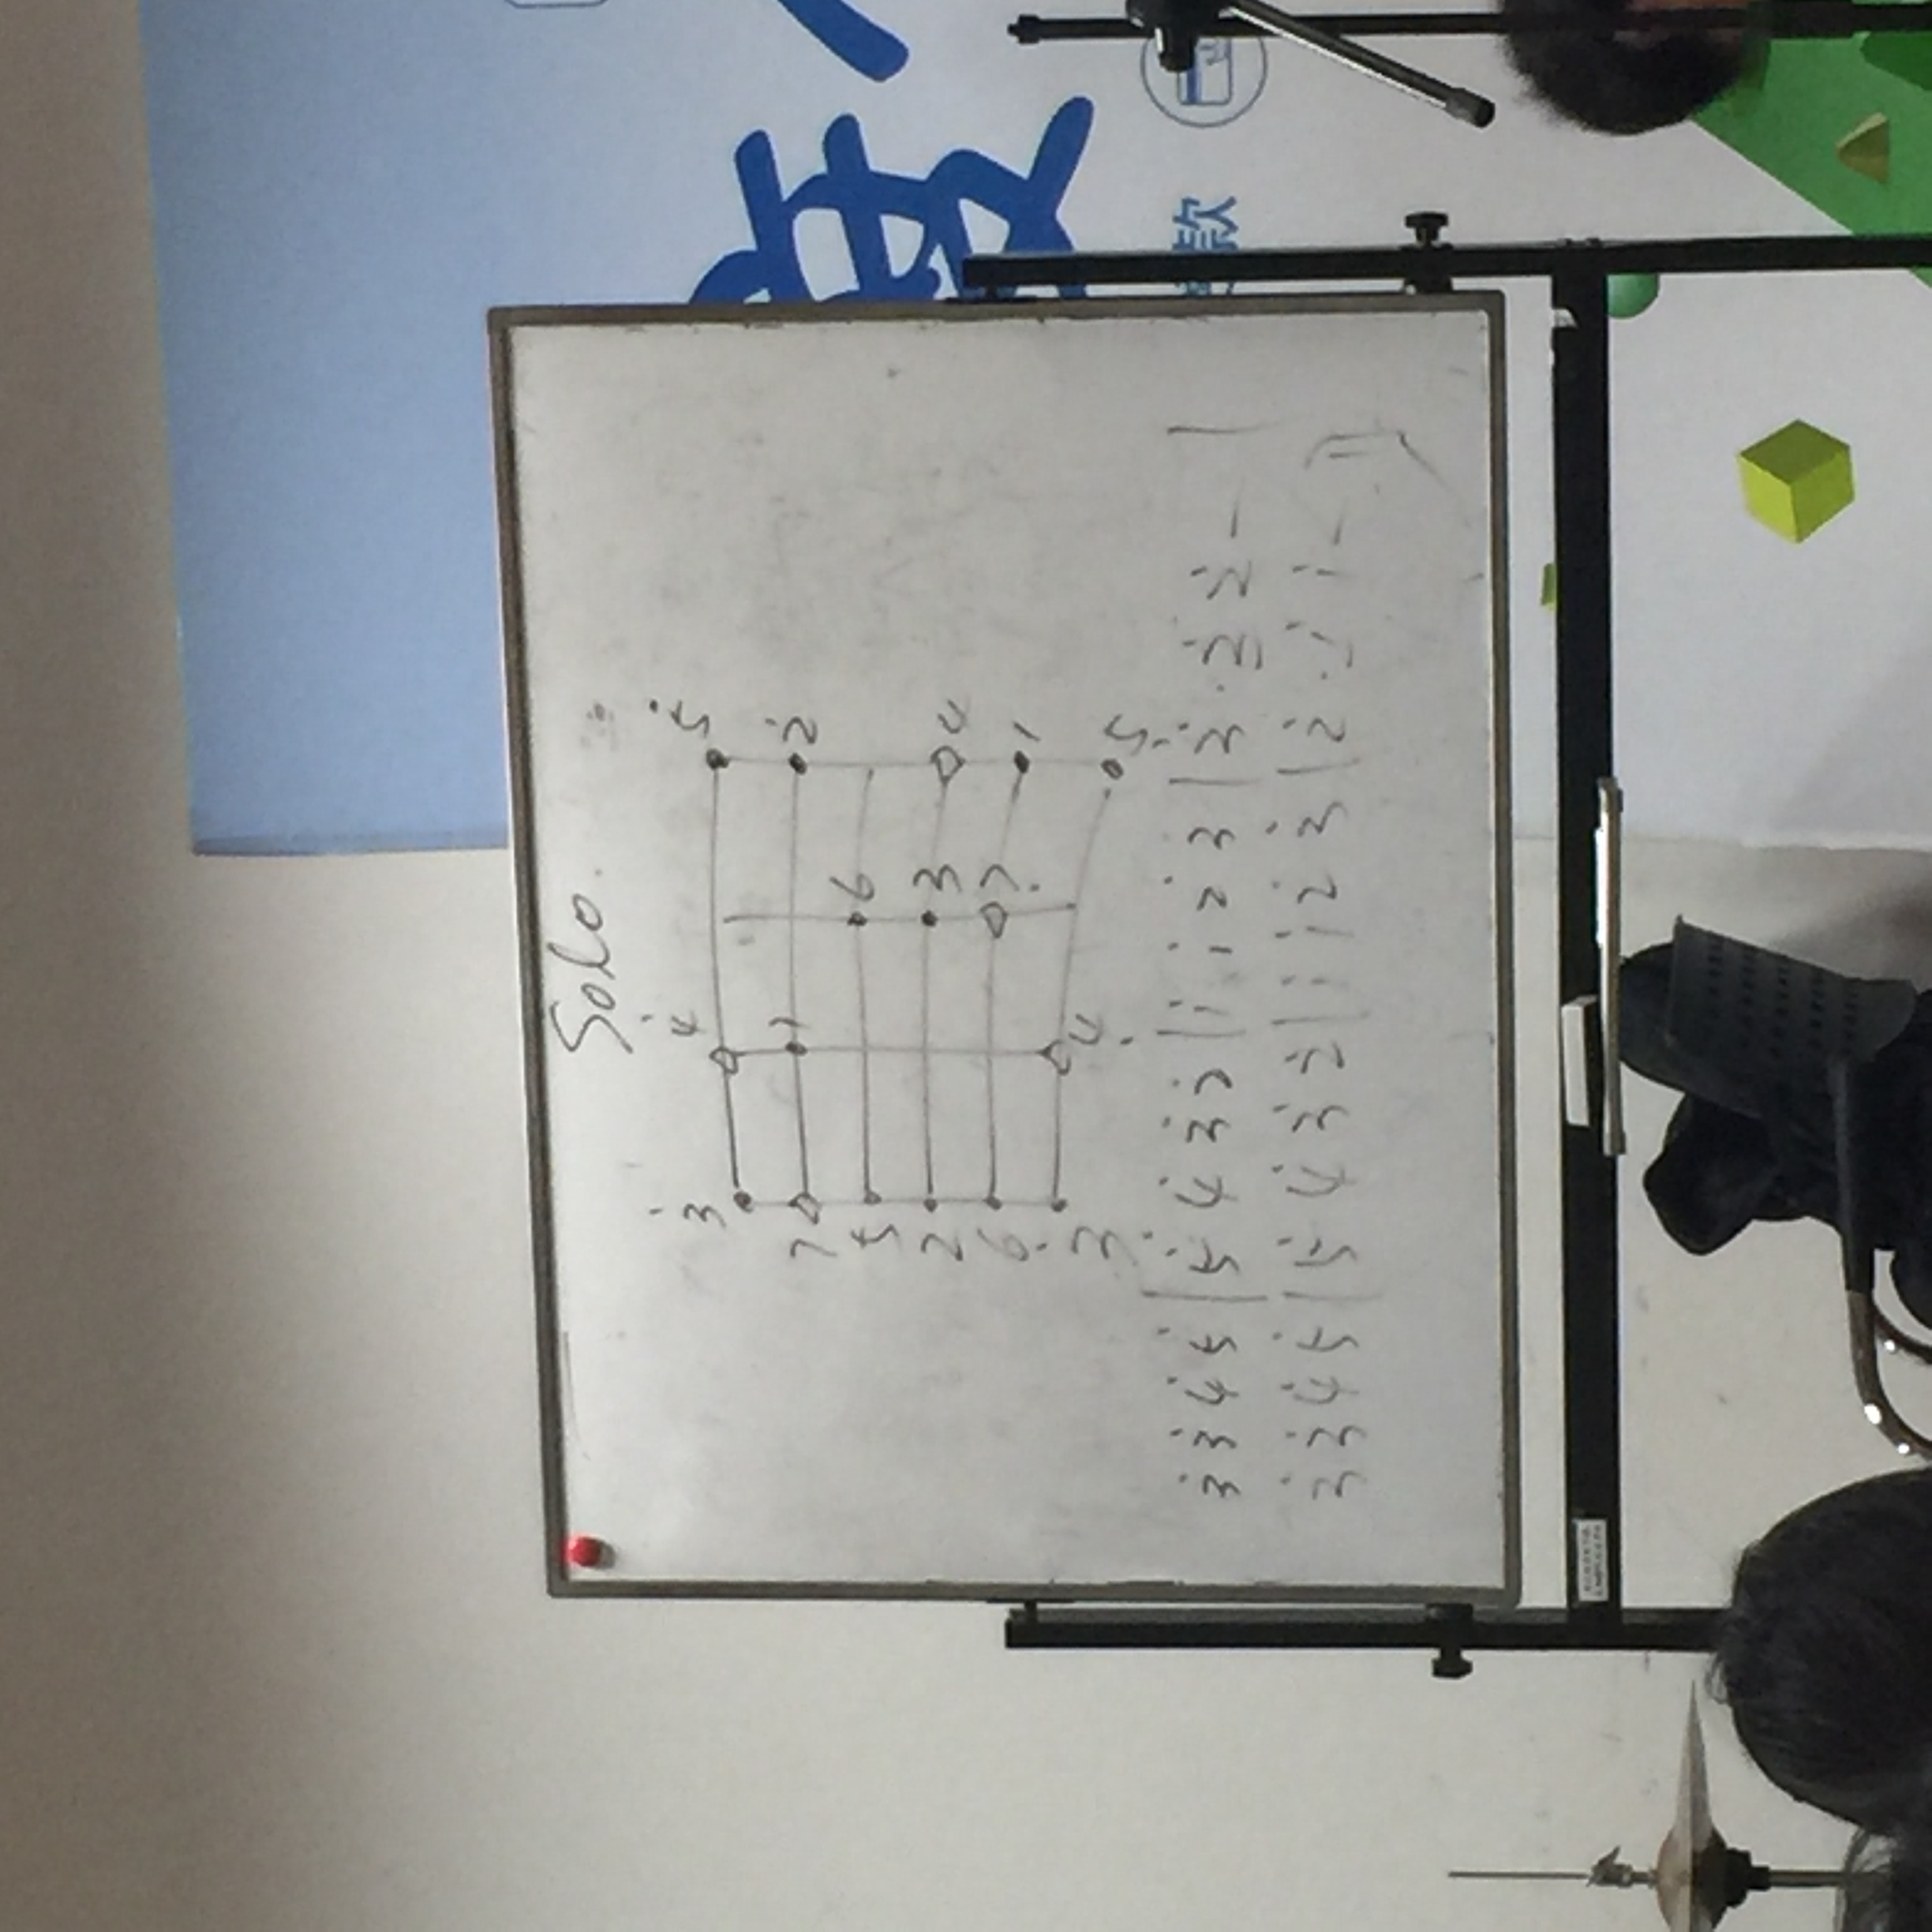 Solo.
3̇ 4̇ 5̇
7 1̇ 2̇
5 6
2 3 4
6̣ 7̣ 1
3̣ 4̣ 5̣
3̇ 3̇ 4̇ 5̇ | 5̇ 4̇ 3̇ 2̇ | 1̇ 1̇ 2̇ 3̇ | 3̇ · 2̲̇ 2̇ — |
3̇ 3̇ 4̇ 5̇ | 5̇ 4̇ 3̇ 2̇ | 1̇ 1̇ 2̇ 3̇ | 2̇ · 1̲̇ 1̇ — ‖
度
款